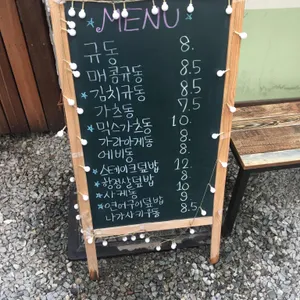 MENU
규동 8.
매콤규동 8.5
김치규동 8.5
가츠동 7.5
믹스가츠동 10.
가라아게동 8.
에비동 8.
스테이크덮밥 12.
항정살덮밥 8
사케동 10
연어구이덮밥 9
나가사키우동 8.5